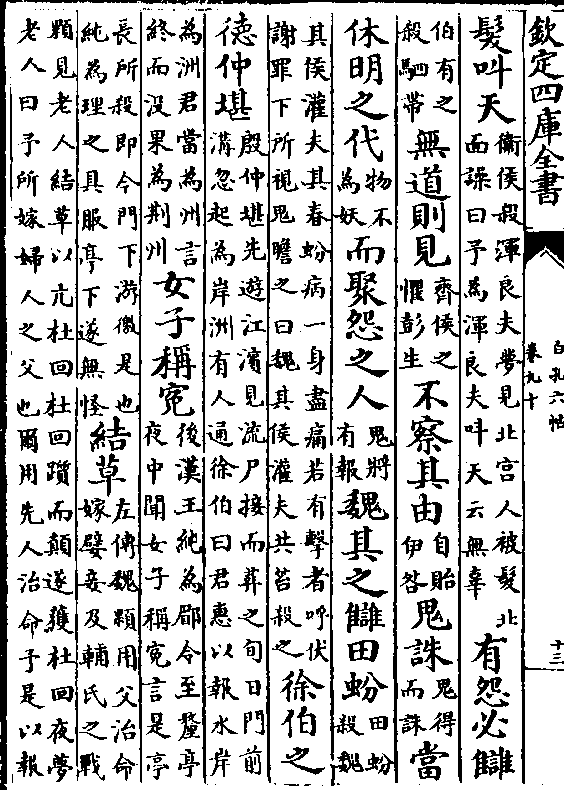 欽定四庫全書
白孔六帖
卷九十
十三
髮叫天
衛侯殺渾良夫夢見北宮人被髮北
面譟曰予為渾良夫叫天云無辜
有怨必讎
伯有之
殺駟帶
無道則見
齊侯之
懼彭生
不察其由
自貽
伊咎
鬼誅
鬼得
而誅
當
休明之代
物不
為妖
而聚怨之人
鬼將
有報
魏其之讎田蚡
田蚡
殺魏
其侯灌夫其春蚡病一身盡痛若有擊者呼伏
謝罪下所視鬼瞻之曰魏其侯灌夫共笞殺之
徐伯之
德仲堪
殷仲堪先遊江濱見流尸接而葬之旬日門前
溝忽起為岸洲有人通徐伯曰君惠以報水岸
為洲君當為州言
終而没果為荆州
女子稱冤
後漢王純為郿令至釐亭
夜中聞女子稱冤言是亭
長所殺即令門下游徼是也
純為理之具服亭下遂無怪
結草
左傳魏顆用父治命
嫁嬖妾及輔氏之戰
顆見老人結草以亢杜回杜回躓而顛遂獲杜回夜夢
老人曰予所嫁婦人之父也爾用先人治命予是以報